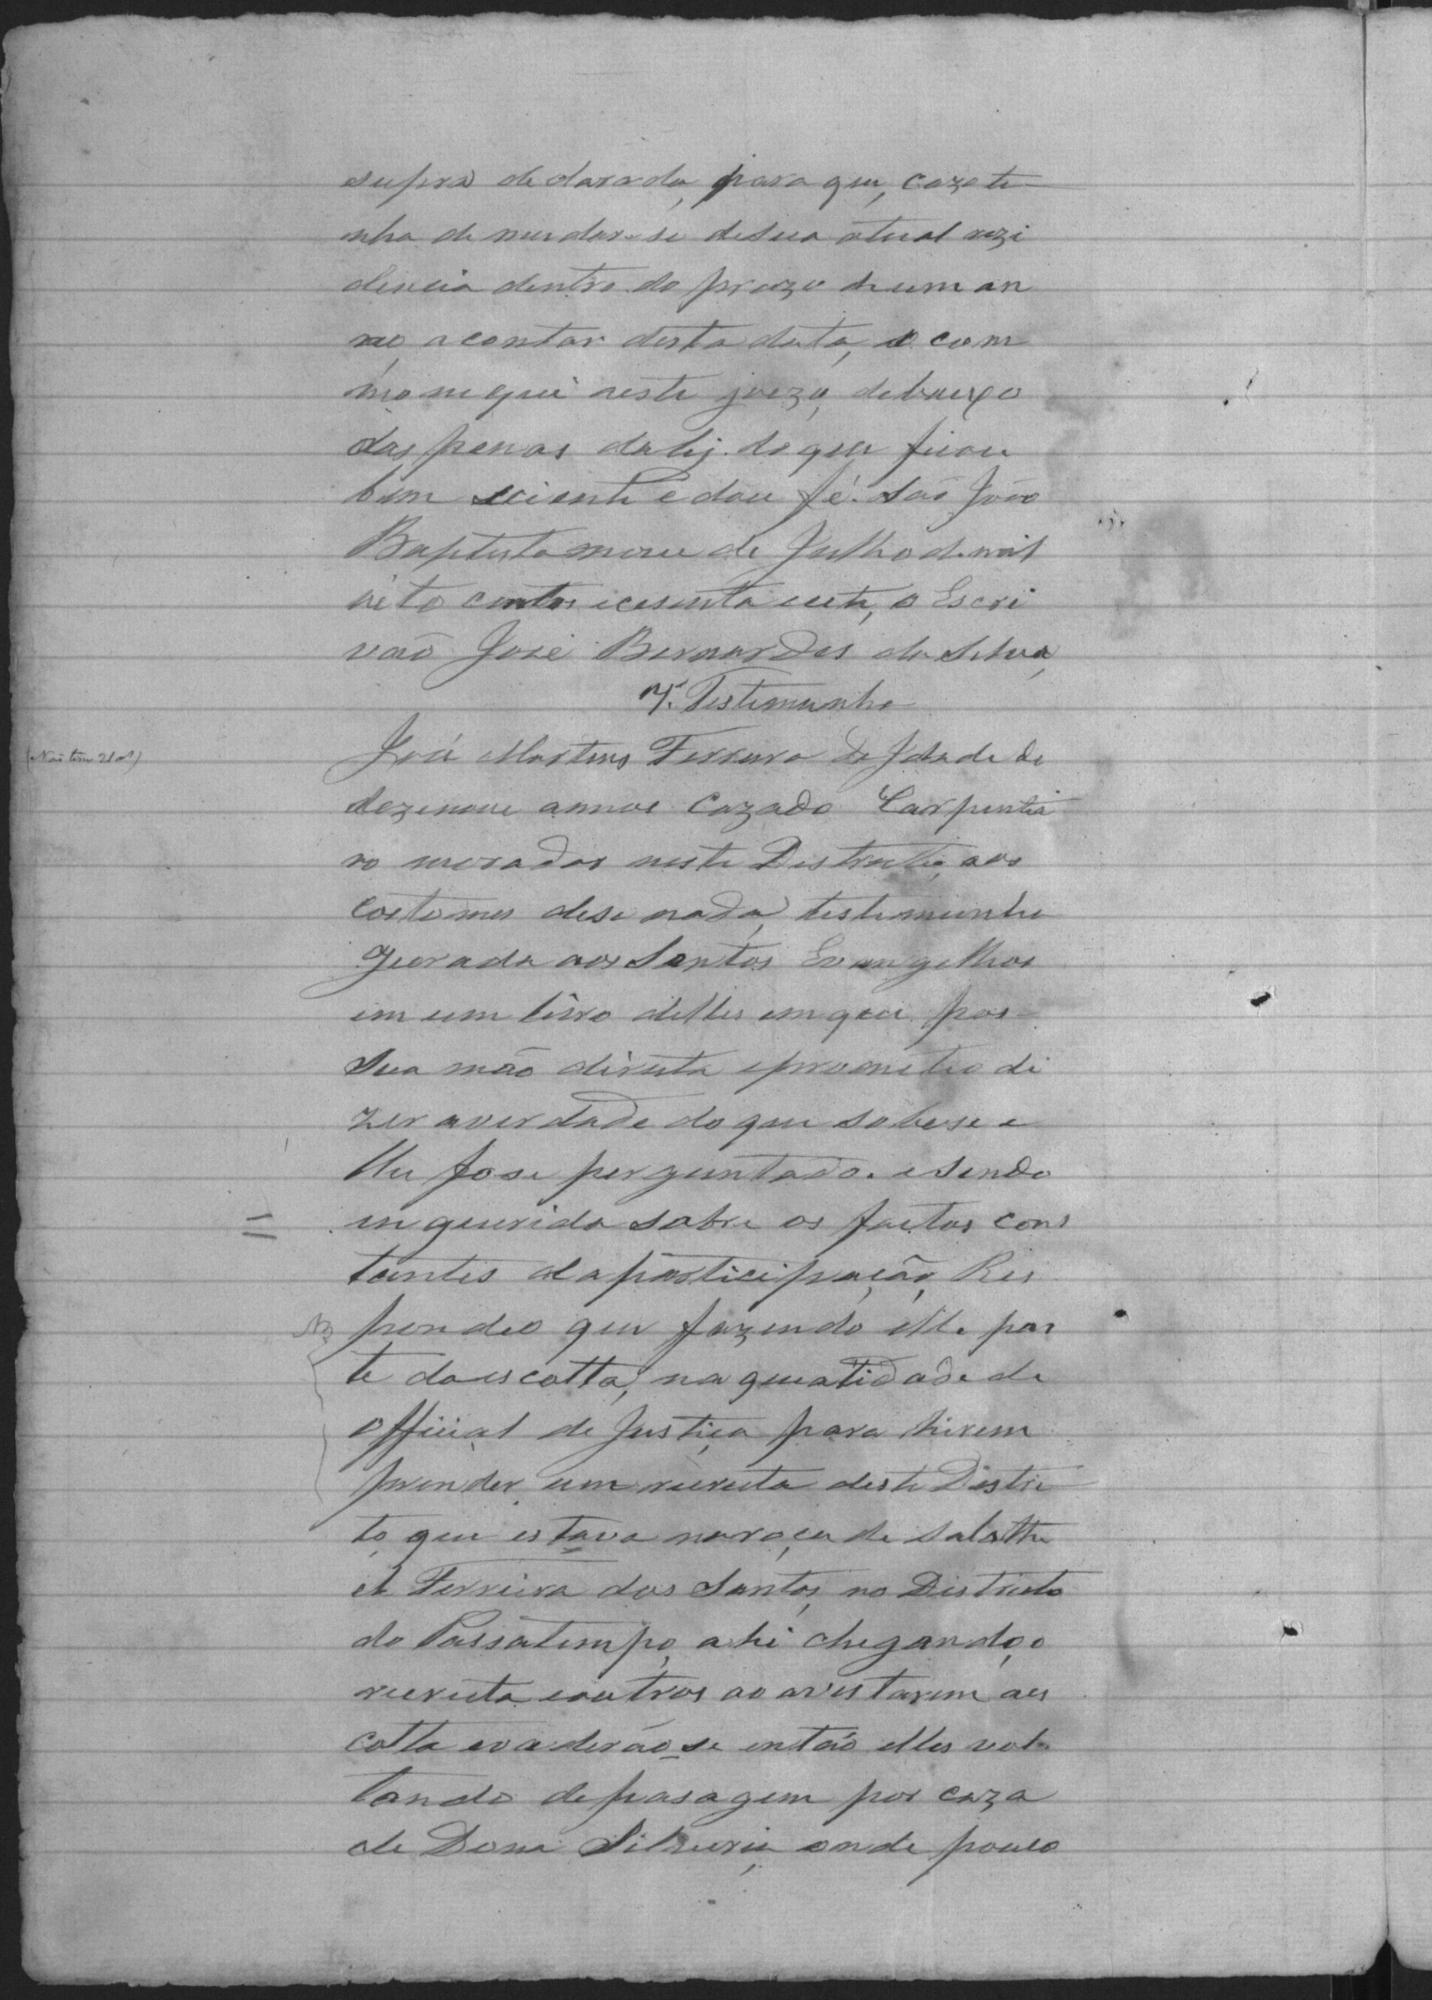 supra declarada, para que, cazo te-
nha de mudar-se de sua atual rezi
dencia dentro do prazo de um an
no, a contar desta data, o com
monique neste juizo, debaixo
das penas da lej. do que ficou
bem sciente e dou fé. São João
Baptista nove de Julho de mil
oito centos e cesenta e cete, o Escri
vão José Bernardes da Silva,
7ª Testemunha
(Não tem 21 as)
José Martins Ferreira de Idade de
dezenove annos Cazado Carpentei
ro morador neste Destricto, aos
costumes dise nada, testemunha
Jurada aos Santos Evangelhos
em um livro delles em que pos
Sua mão direita e prometeo di
zer a verdade do que sobese e
lhe fose perguntado. e sendo
inquerida sobre os factos cons
tantes da participação, Res
pondeo que fazendo elle par
te da escolta, na qualidade de
Official de Justiça para hirem
prender um recruta deste Distri
to, que estava na roça de Salathi
el Ferreira dos Santos, no Districto
do Passatempo, ahi chegando, o
recruta e outros ao avistarem a es
colta evaderão-se então elles vol-
tando de pasagem por caza
de Dona Silveria, onde pouco